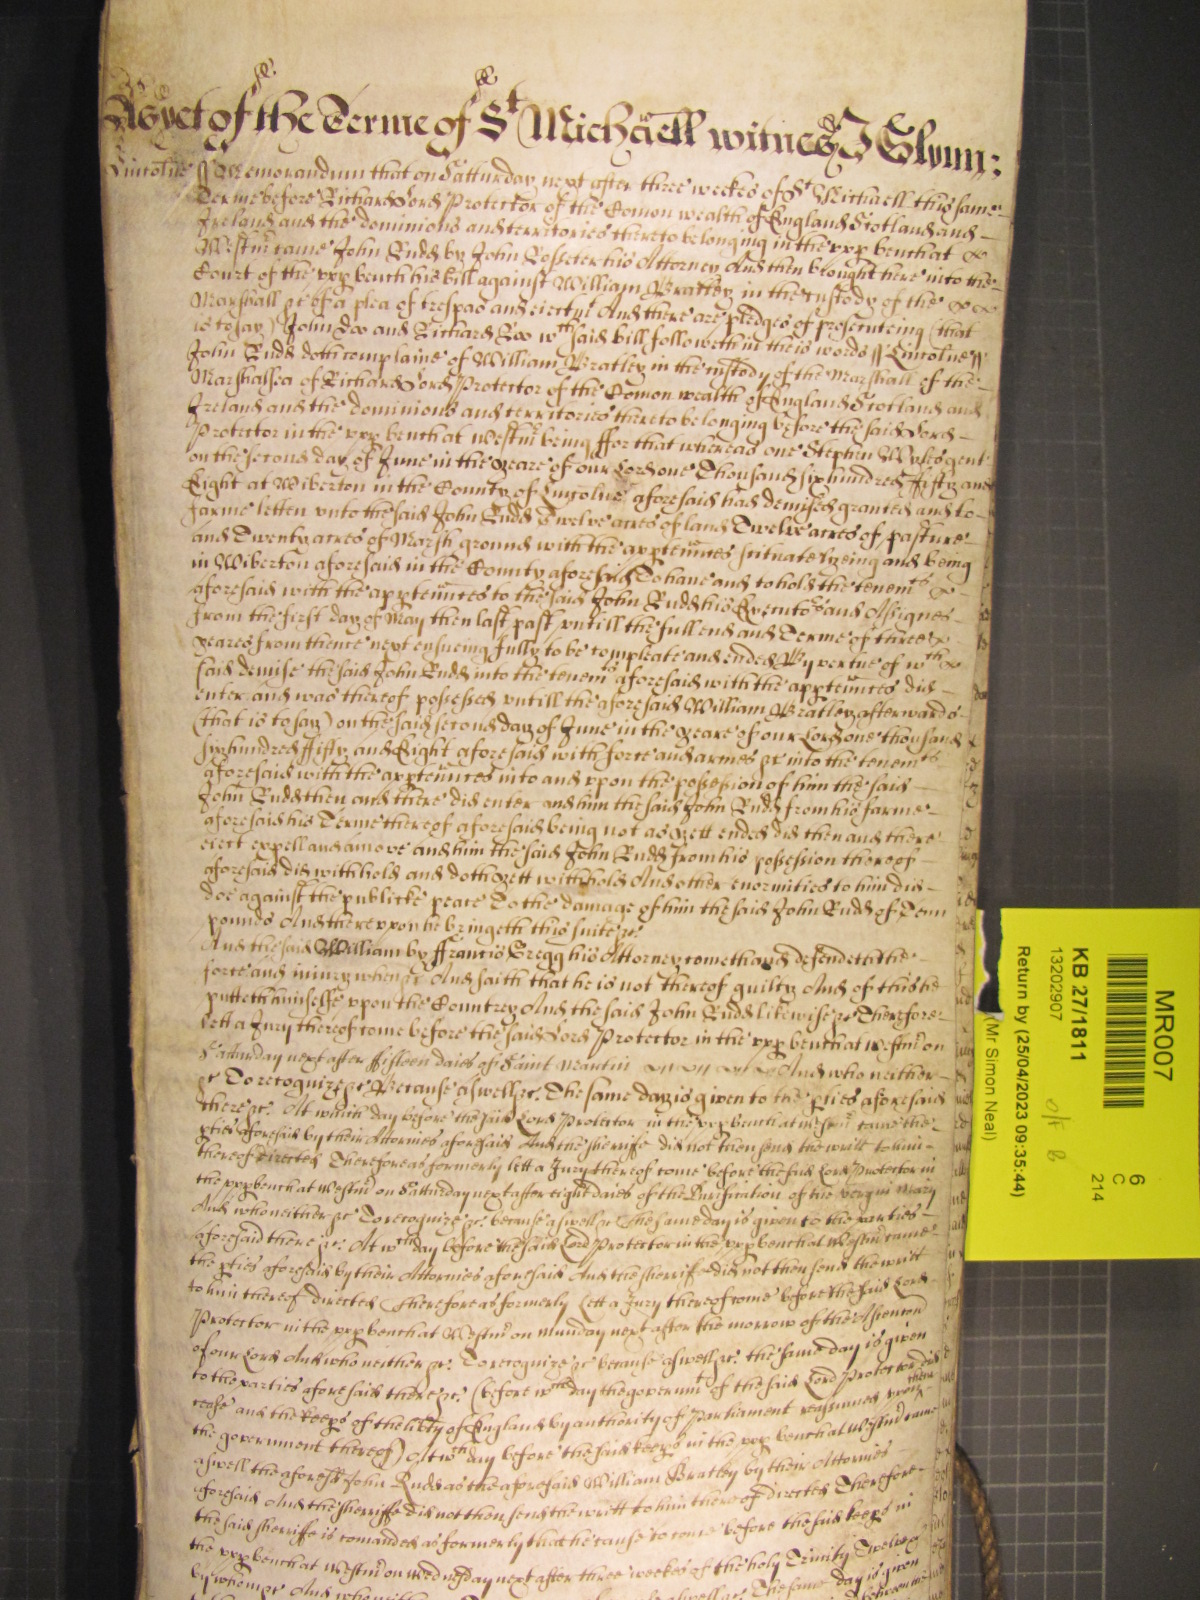 As yet of the Terme of St Michaell witnes J Glynn:
Lincolne ss Memorandum that on Satturday next after three weekes of St Michaell this same
Terme before Richard Lord Protector of the Comon wealth of England Scotland and
Ireland and the dominions and territories thereto belonging in the vpp bench at
Westm came John Rudd by John Rosseter his Attorney And then brought here into the
Court of the vpp bench his bill against William Bratley in the custody of the
Marshall &c of a plea of trespas and eiectmt And there are pledges of prosecuteing (that
is to say) John Doo and Richard Roo wch said bill followeth in theis words ss Lincolne ss
John Rudd doth complaine of William Bratley in the custody of the Marshall of the
Marshallsea of Richard Lord Protector of the Comon wealth of England Scotland and
Ireland and the dominions and territories thereto belonging before the said Lord
Protector in the vpp bench at Westm being ffor that whereas one Stephen Wyles gent
on the second day of June in the yeare of our Lord one Thousand six hundred fifty and
Eight at Wiberton in the County of Lincolne aforesaid had demised granted and to
farme letten vnto the said John Rudd Twelve acres of land Twelve acres of pasture
and Twenty acres of Marsh ground with the apptennces scituate lyeing and being
in Wiberton aforesaid in the County aforesaid To haue and to hold the tenemts
aforesaid with the apptennces to the said John Rudd his Executors and Assignes
from the first day of May then last past vntill the full end and Terme of three
yeares from thence next ensueing fully to be compleate and ended By vertue of wch
said demise the said John Rudd into the tenemts aforesaid with the apptennces did
enter and was thereof possessed vntill the aforesaid William Bratley afterwards
(that is to say) on the said second day of June in the yeare of our Lord one thousand
six hundred fifty and Eight aforesaid with force and armes &c into the tenemts
aforesaid with the apptennces into and vpon the possession of him the said
John Rudd then and there did enter and him the said John Rudd from his farme
aforesaid his Terme thereof aforesaid being not as yett ended did then and there
eiect expell and amove and him the said John Rudd from his possession thereof
aforesaid did withhold and doth yett withhold And other enormities to him did
doe against the publicke peace To the damage of him the said John Rudd of Tenn
pounds And therevpon he bringeth this suite &c
And the said William by ffrancis Gregg his Attorney cometh and defendeth the
force and iniury when &c And saith that he is not thereof guilty And of this he
putteth himselfe vpon the Countrey And the said John Rudd likewise &c Therefore
lett a Jury thereof come before the said Lord Protector in the vpp bench at Westm on
Satturday next after fifteen daies of Saint Martin And who neither
&c To recognize &c Because aswell &c The same day is given to the pties aforesaid
there &c. At which day before the said Lord Protector in the vpp bench at Westm came the
pties aforesaid by their Attornies aforesaid And the Sherriffe did not then send the writt to him
thereof directed Therefore as formerly lett a Jury thereof come before the said Lord Protector in
the vpp bench at Westm on Satturday next after eight daies of the Purification of the virgin Mary
And who neither &c To recognize &c because aswell &c The same day is given to the parties
aforesaid there &c. At wch day before the said Lord Protector in the vpp bench at Westm came
the pties aforesaid by their Attornies aforesaid And the sherriffe did not then send the writt
to him thereof directed Therefore as formerly lett a Jury thereof come before the said Lord
Protector in the vpp bench at Westm on munday next after the morrow of the Ascention
of our Lord And who neither &c. To recognize &c because aswell &c. the same day is given
to the parties aforesaid there &c. (before wch day the governmt of the said Lord Protector did
cease and the keeps of the libty of England by authority of Parliament reassumed vpon them
the government thereof) At wch day before the said keeps in the vpp bench at Westm came
aswell the aforesd John Rudd as the aforesaid William Bratley by their Attornies
aforesaid And the sherriffe did not then send the writt to him thereof directed Therefore
the said sherriffe is comanded as formerly that he cause to come before the said keeps in
the vpp bench at Westm on Wednesday next after three weekes of the holy Trinity Twelve
by whom &c And who neither aswell &c. The same day is given
MR007
6
C
214
KB 27/1811
13202907
Return by (25/04/2023 09:35:44)
(Mr Simon Neal)